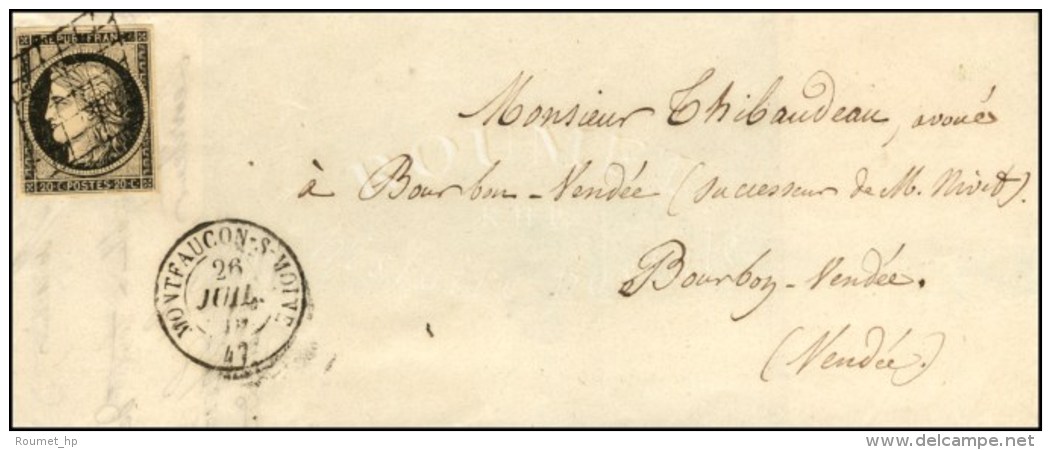 REPUB FRANC
20·C·POSTES·20·C
Monsieur Thibaudeau, avoué
à Bourbon-Vendée (successeur de M. Nivet).
Bourbon-Vendée.
(Vendée)
MONTFAUCON-S-MOINE
26
JUIL.
49
Roumet_hp
www.delcampe.net